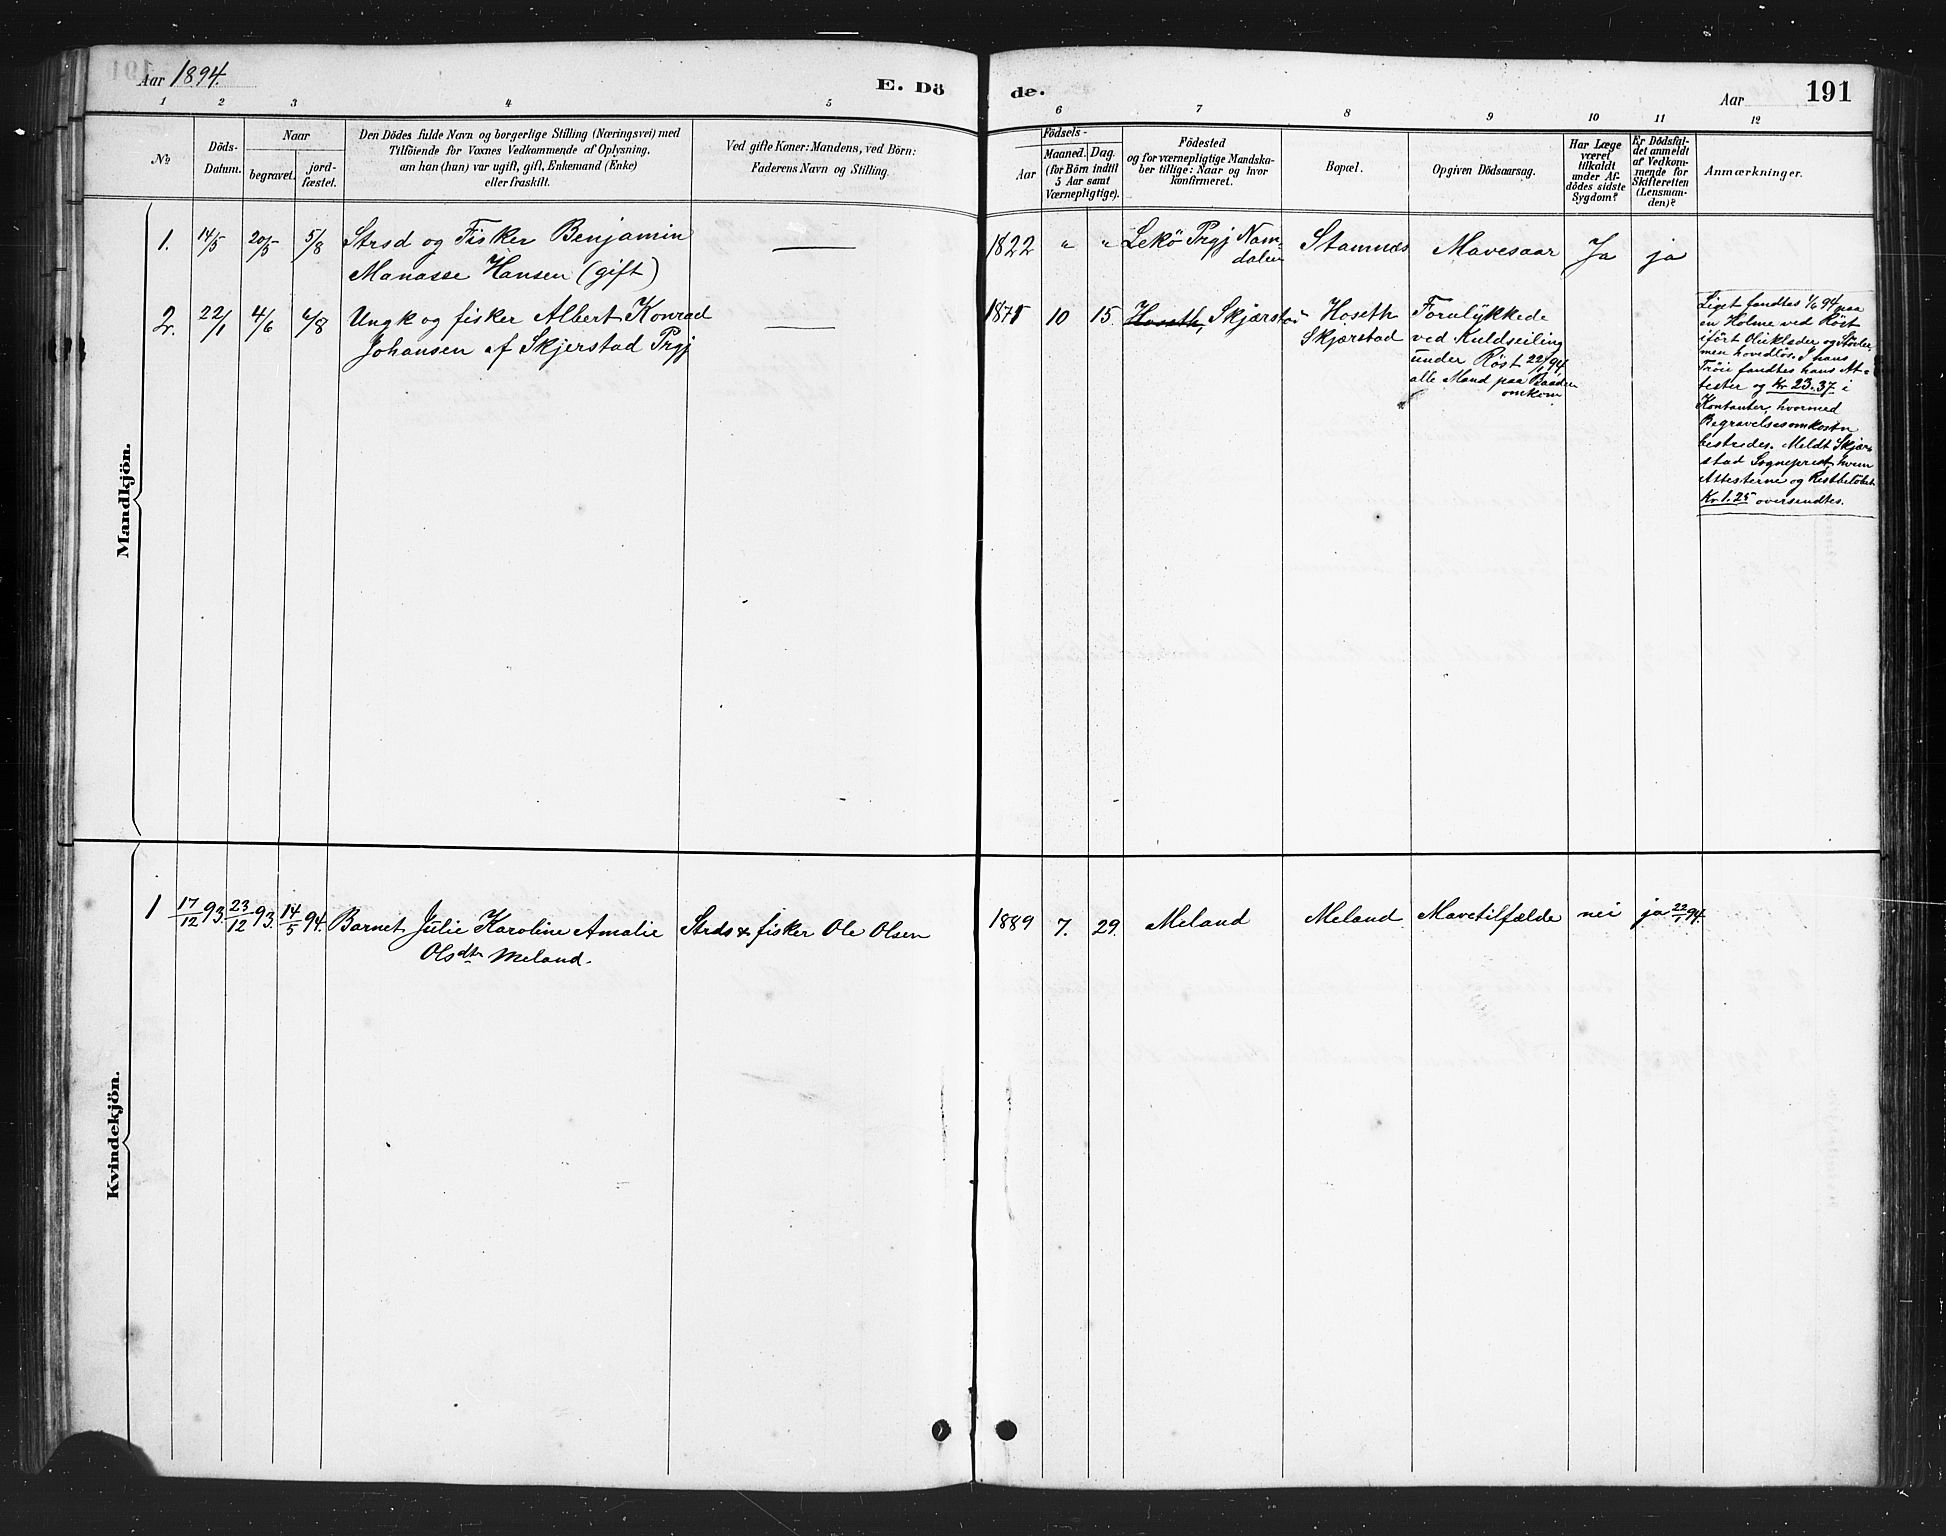 Aar 1894.
E. Dö
de.
Aar
191
1 2 3 4 5 6 7 8 9 10 11 12
No
Döds-
Datum.
Naar
begravet.
jord-
fæstet.
Den Dödes fulde Navn og borgerlige Stilling (Næringsvei) med
Tilföiende for Voxnes Vedkommende af Oplysning,
om han (hun) var ugift, gift, Enkemand (Enke)
eller fraskilt.
Ved gifte Koner: Mandens, ved Börn:
Faderens Navn og Stilling.
Födsels-
Aar
Maaned. Dag.
(for Börn indtil
5 Aar samt
Værnepligtige).
Födested
og for værnepligtige Mandska-
ber tillige: Naar og hvor
konfirmeret.
Bopæl.
Opgiven Dödsaarsag.
Har Læge
været
tilkaldt
under Af-
dödes sidste
Sygdom?
Er Dödsfal-
det anmeldt
af Vedkom-
mende for
Skifteretten
(Lensman-
den)?
Anmærkninger.
Mandkjön.
1. 14/5 20/5 5/8 Strsd og Fisker Benjamin
Manasse Hansen (gift)
1822 " " Lekö Prgj Nam-
dalen
Stamnes
Mavesaar
Ja
ja
2. 22/1 4/6 6/8 Ungk og fisker Albert Konrad
Johansen af Skjerstad Prgj
10 15. Hoseth, Skjærstad
Hoseth
Skjærstad
Forulykkede
ved Kuldseiling
under Röst 22/1 94
alle Mand paa Baaden
omkom
Liget fandtes 1/6 94 paa
en Holme ved Röst
iført Olieklæder og Støvler,
men hovedløs. I hans
Trøie fandtes hans At-
tester og Kr 23.37 i
Kontanter, hvormed
Begravelsesomkostn
bestredes. Meldt Skjær-
stad Sogneprest hvem
Attesterne og Restbeløbet
Kr 1.25 oversendtes.
Kvindekjön.
1 17/12 93. 23/12 93. 14/5 94. Barnet Julie Karoline Amalie
Olsdtr Meland.
Strds & fisker Ole Olsen
1889 7. 29. Meland
Meland
Mavetilfælde
nei
ja 22/1 94.